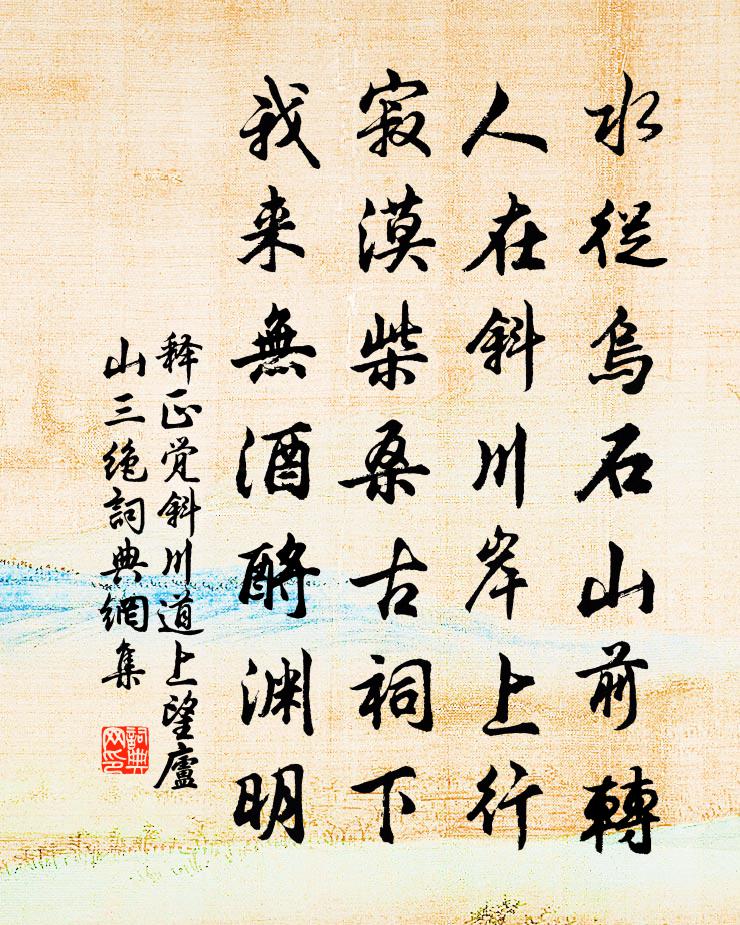 水從烏石山前轉
人在斜川岸上行
寂漠柴桑古祠下
我来無酒酹渊明
释正觉斜川道上望廬
山三绝詞典網集
詞典
网印